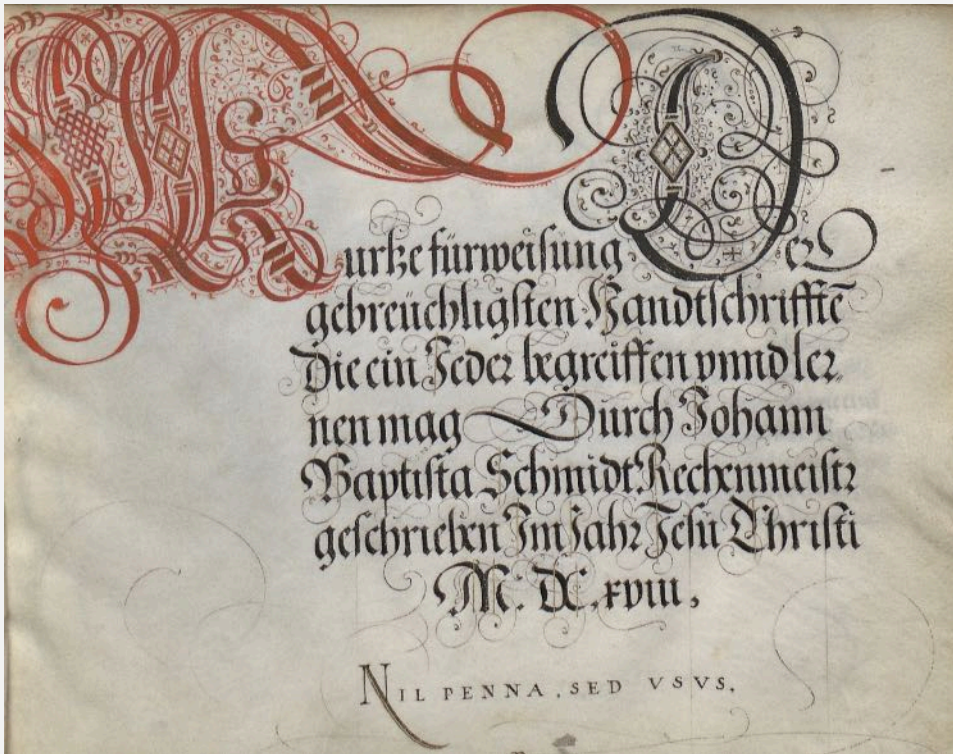 Kurtze fürweisung Der
gebreüchligsten Handtschrifftē
Die ein Jeder begreiffen vnnd ler
nen mag Durch Johann
Baptista Schmidt Rechenmeistr
geschrieben Im Jahr Jesu Christi
M. DC. xviii.
NIL PENNA, SED VSVS.